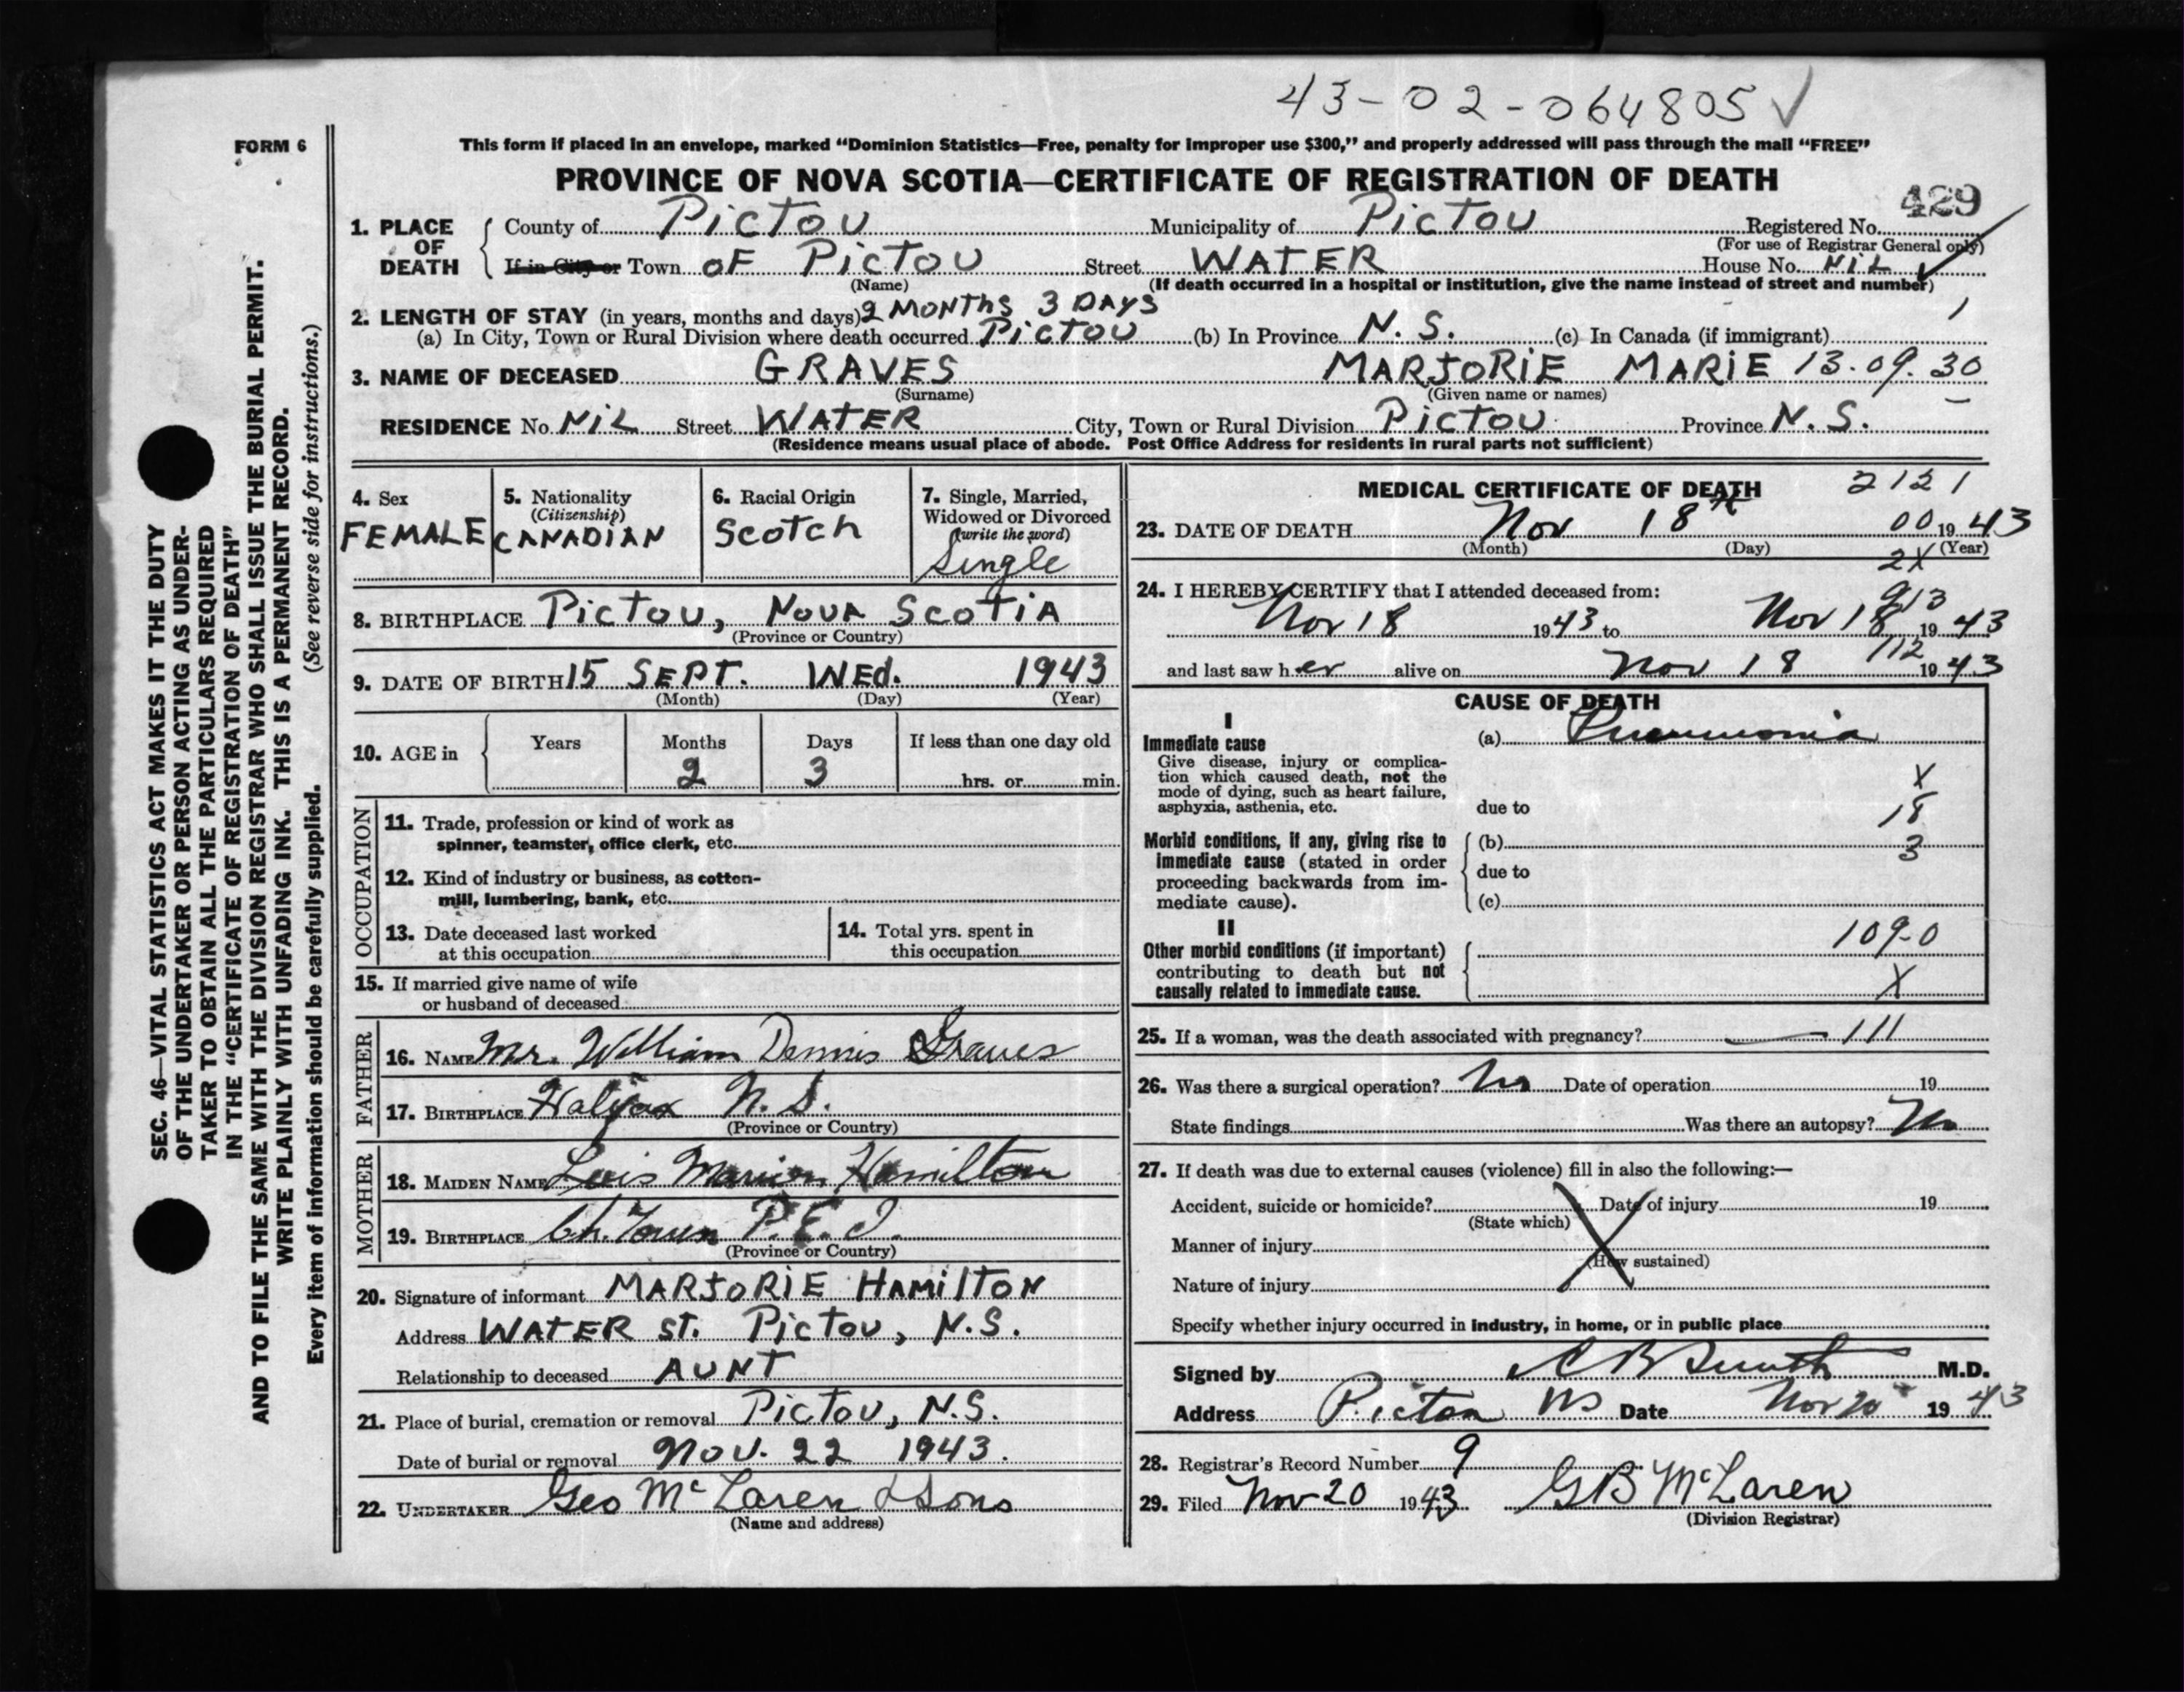 43-02-064805 ✓
FORM 6
This form if placed in an envelope, marked “Dominion Statistics—Free, penalty for improper use $300,” and properly addressed will pass through the mail “FREE”
PROVINCE OF NOVA SCOTIA—CERTIFICATE OF REGISTRATION OF DEATH
429
1. PLACE OF DEATH County of PICTOU Municipality of PICTOU Registered No.
(For use of Registrar General only)
If in City or Town OF PICTOU Street WATER House No. NIL
(Name) (If death occurred in a hospital or institution, give the name instead of street and number)
2. LENGTH OF STAY (in years, months and days) 2 MONTHS 3 DAYS 1
(a) In City, Town or Rural Division where death occurred PICTOU (b) In Province N. S. (c) In Canada (if immigrant)
3. NAME OF DECEASED GRAVES MARJORIE MARIE 13.09.30
(Surname) (Given name or names)
RESIDENCE No. NIL Street WATER City, Town or Rural Division PICTOU Province N. S.
(Residence means usual place of abode. Post Office Address for residents in rural parts not sufficient)
4. Sex
FEMALE
5. Nationality
(Citizenship)
CANADIAN
6. Racial Origin
SCOTCH
7. Single, Married,
Widowed or Divorced
(write the word)
Single
8. BIRTHPLACE PICTOU, NOVA SCOTIA
(Province or Country)
9. DATE OF BIRTH 15 SEPT. WED. 1943
(Month) (Day) (Year)
10. AGE in Years Months Days If less than one day old
2 3 hrs. or min.
OCCUPATION
11. Trade, profession or kind of work as
spinner, teamster, office clerk, etc.
12. Kind of industry or business, as cotton-
mill, lumbering, bank, etc.
13. Date deceased last worked
at this occupation
14. Total yrs. spent in
this occupation
15. If married give name of wife
or husband of deceased
FATHER
16. NAME Mr. William Dennis Graves
17. BIRTHPLACE Halifax N. S.
(Province or Country)
MOTHER
18. MAIDEN NAME Lois Marion Hamilton
19. BIRTHPLACE Ch. Town P. E. I.
(Province or Country)
20. Signature of informant MARJORIE HAMILTON
Address WATER ST. PICTOU, N.S.
Relationship to deceased AUNT
21. Place of burial, cremation or removal PICTOU, N.S.
Date of burial or removal NOV. 22 1943.
22. UNDERTAKER Geo McLaren & Sons
(Name and address)
MEDICAL CERTIFICATE OF DEATH 2121
23. DATE OF DEATH Nov 18th 00 1943
(Month) (Day) (Year)
2X
24. I HEREBY CERTIFY that I attended deceased from:
913
Nov 18 1943 to Nov 18 1943
112
and last saw her alive on Nov 18 1943
CAUSE OF DEATH
I
Immediate cause
Give disease, injury or complica-
tion which caused death, not the
mode of dying, such as heart failure,
asphyxia, asthenia, etc.
(a) Pneumonia
X
due to 18
Morbid conditions, if any, giving rise to
immediate cause (stated in order
proceeding backwards from im-
mediate cause).
(b) 3
due to
(c)
II
Other morbid conditions (if important)
contributing to death but not
causally related to immediate cause.
109-0
X
25. If a woman, was the death associated with pregnancy? — 111
26. Was there a surgical operation? No Date of operation 19
State findings Was there an autopsy? No
27. If death was due to external causes (violence) fill in also the following:—
Accident, suicide or homicide? Date of injury 19
(State which)
Manner of injury
(How sustained)
Nature of injury
Specify whether injury occurred in industry, in home, or in public place
Signed by M.D.
Address Pictou NS Date Nov 20 1943
28. Registrar's Record Number 9
29. Filed Nov 20 1943 GB McLaren
(Division Registrar)
SEC. 46—VITAL STATISTICS ACT MAKES IT THE DUTY
OF THE UNDERTAKER OR PERSON ACTING AS UNDER-
TAKER TO OBTAIN ALL THE PARTICULARS REQUIRED
IN THE “CERTIFICATE OF REGISTRATION OF DEATH”
AND TO FILE THE SAME WITH THE DIVISION REGISTRAR WHO SHALL ISSUE THE BURIAL PERMIT.
WRITE PLAINLY WITH UNFADING INK. THIS IS A PERMANENT RECORD.
Every item of information should be carefully supplied. (See reverse side for instructions.)